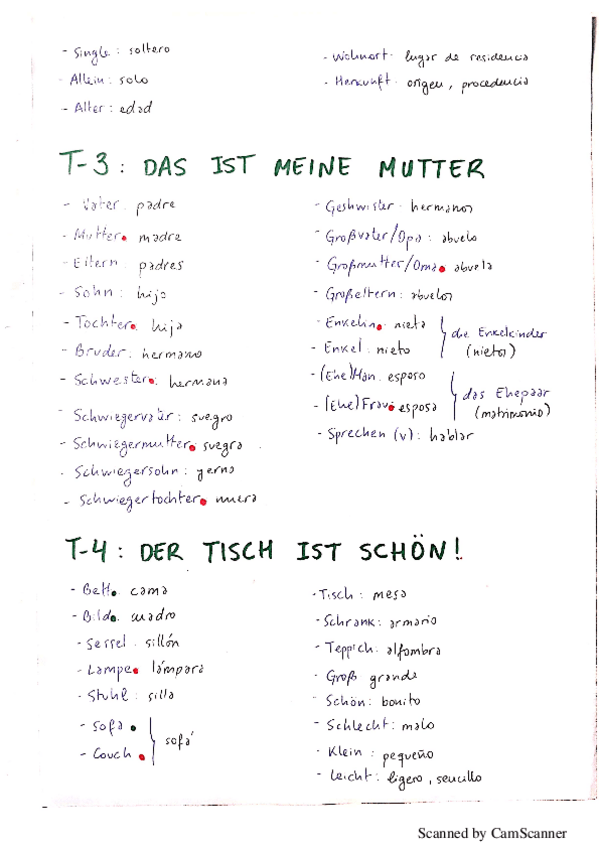 - Single : soltero
- Allein : solo
- Alter : edad
- Wohnort · lugar de residencia
- Herkunft · origen, procedencia
T-3 : DAS IST MEINE MUTTER
- Vater · padre
- Mutter · madre
- Eltern · padres
- Sohn : hijo
- Tochter · hija
- Bruder : hermano
- Schwester · hermana
- Schwiegervater : suegro
- Schwiegermutter · suegra
- Schwiegersohn : yerno
- Schwiegertochter · nuera
- Geshwister · hermanos
- Großvater/Opa : abuelo
- Großmutter/Oma · abuela
- Großeltern : abuelos
- Enkelin · nieta
- Enkel : nieto
die Enkelkinder
(nietos)
- (Ehe)Man · esposo
- (Ehe)Frau · esposa
das Ehepaar
(matrimonio)
- Sprechen (v) : hablar
T-4 : DER TISCH IST SCHÖN!
- Bett · cama
- Bild · cuadro
- Sessel · sillón
- Lampe · lámpara
- Stuhl : silla
- Sofa ·
- Couch ·
sofá
- Tisch : mesa
- Schrank : armario
- Teppich : alfombra
- Groß grande
- Schön : bonito
- Schlecht : malo
- Klein : pequeño
- Leicht : ligero, sencillo
Scanned by CamScanner